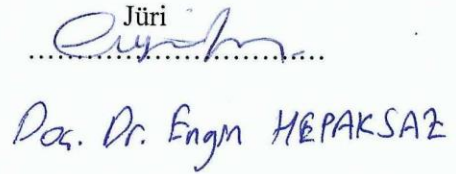 Jüri
Doç. Dr. Engin HEPAKSAZ